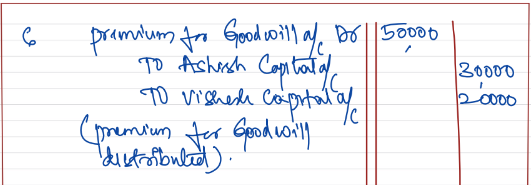 6 premium for Goodwill a/c Dr 50000
To Ashish Capital a/c 30000
To Vishesh Capital a/c 20000
(premium for Goodwill
distributed).